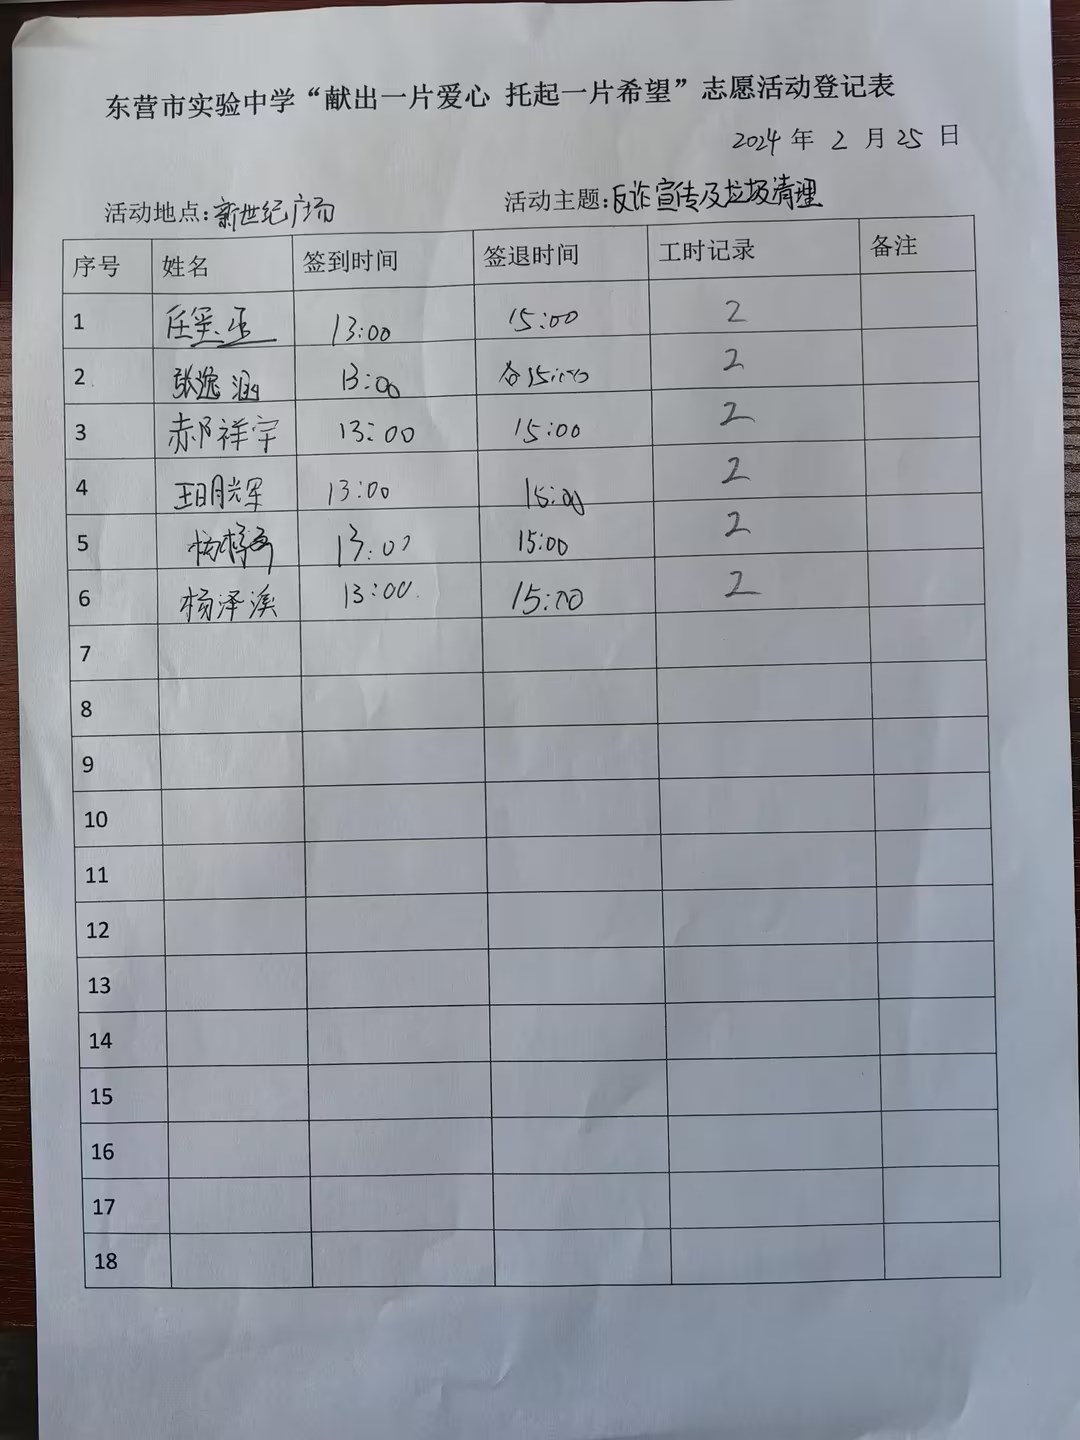 东营市实验中学“献出一片爱心 托起一片希望”志愿活动登记表
2024 年 2 月 25 日
活动地点:新世纪广场 活动主题:反诈宣传及垃圾清理
序号 姓名 签到时间 签退时间 工时记录 备注
1 任 13:00 15:00 2
2 张逸涵 13:00 15:00 2
3 郝祥宇 13:00 15:00 2
4 王明光军 13:00 15:00 2
5 杨梓 13:00 15:00 2
6 杨泽溪 13:00 15:00 2
7
8
9
10
11
12
13
14
15
16
17
18